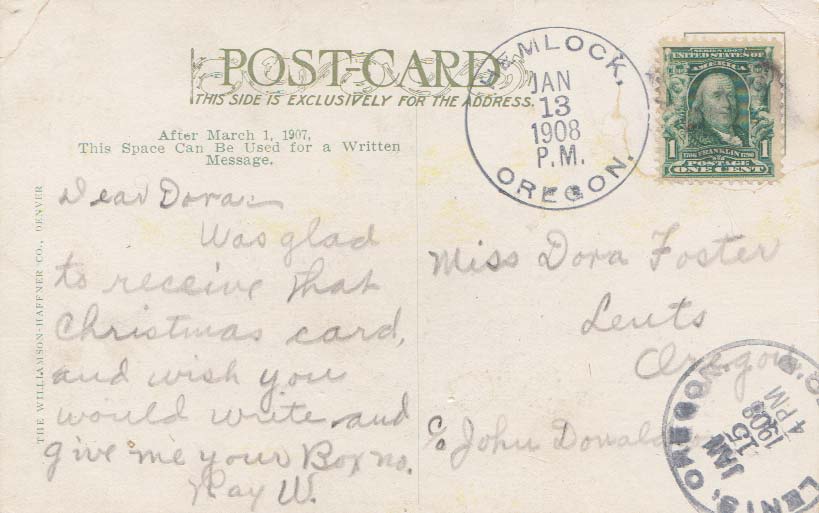 POST-CARD
THIS SIDE IS EXCLUSIVELY FOR THE ADDRESS.
HEMLOCK,
JAN
13
1908
P.M.
OREGON.
SERIES 1902
UNITED STATES OF
AMERICA
1 FRANKLIN 1
POSTAGE
ONE CENT
After March 1, 1907,
This Space Can Be Used for a Written
Message.
THE WILLIAMSON-HAFFNER CO., DENVER
Dear Dora:
Was glad
to receive that
Christmas card,
and wish you
would write and
give me your Box no.
Ray W.
Miss Dora Foster
Lents
Oregon
c/o John Donald
LENTS, OREGON
JAN
15
1908
4 PM